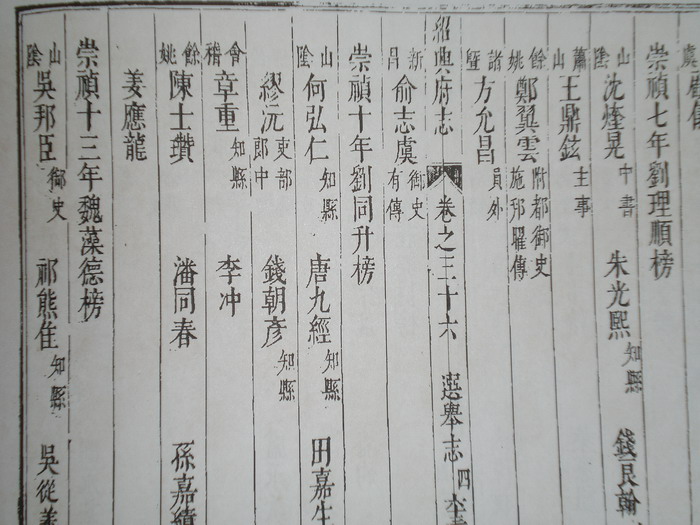 崇禎七年劉理順榜
山陰 沈煃晃 中書 朱光熙 知縣 錢良翰
蕭山 王鼎鉉 主事
餘姚 鄭翼雲 附都御史施邦曜傳
諸暨 方允昌 員外
紹興府志 卷之三十六 選舉志 四
新昌 俞志虞 御史有傳
崇禎十年劉同升榜
山陰 何弘仁 知縣 唐九經 知縣 田嘉生
繆沅 吏部郎中 錢朝彥 知縣
會稽 章重 知縣 李冲
餘姚 陳士瓚 潘同春 孫嘉績
姜應龍
崇禎十三年魏藻德榜
山陰 吳邦臣 御史 祁熊佳 知縣 吳從義